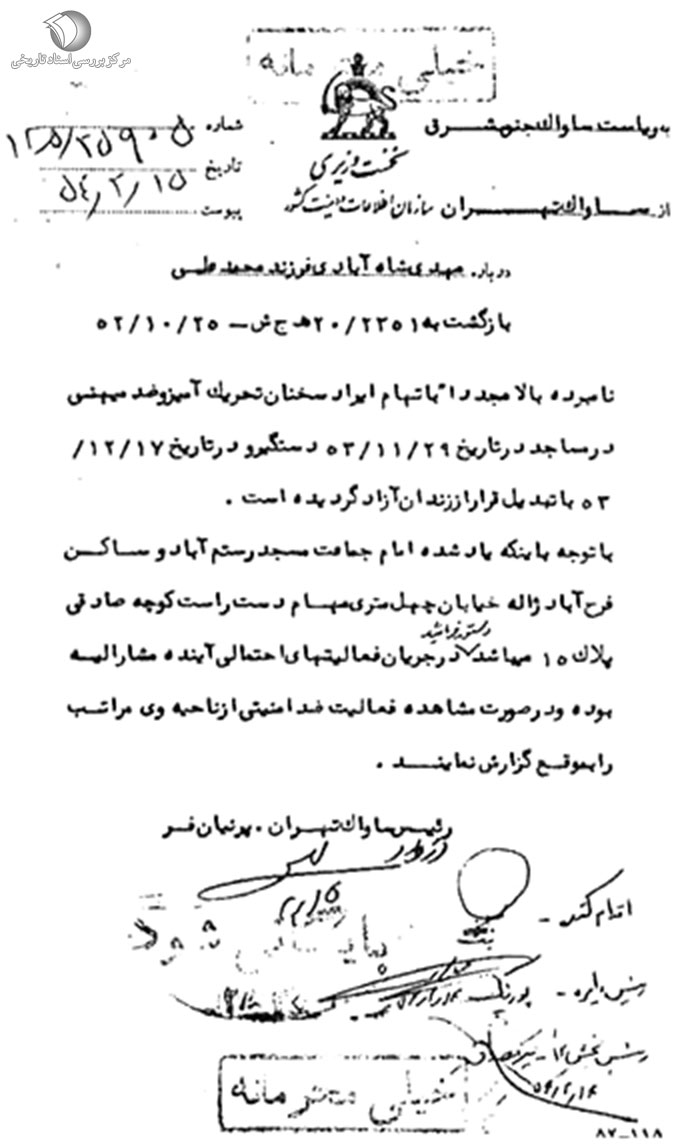 مرکز بررسی اسناد تاریخی
خیلی محرمانه
به ریاست ساواک جنوبشرق
شماره ۱۲۵/۲۵۹۰۵
نخست وزیری
تاریخ ۵۴/۲/۱۵
از ساواک تهران سازمان اطلاعات و امنیت کشور
پیوست
درباره مهدی شاه آبادی فرزند محمد علی
بازگشت به ۲۰/۲۲۵۱ هـ ج ش – ۵۲/۱۰/۲۵
نامبرده بالا مجددا" باتهام ایراد سخنان تحریک آمیز و ضد میهنی
در مساجد در تاریخ ۵۳/۱۱/۲۹ دستگیر و در تاریخ ۱۲/۱۷/
۵۳ با تبدیل قرار از زندان آزاد گردیده است .
با توجه باینکه یاد شده امام جماعت مسجد رستم آباد و ساکن
فرح آباد ژاله خیابان چهل متری سهام دست راست کوچه صادقی
دستور فرمائید
پلاک ۱۵ میباشد در جریان فعالیتهای احتمالی آینده مشارالیه
بوده و در صورت مشاهده فعالیت ضد امنیتی از ناحیه وی مراتب
را بموقع گزارش نمایند .
رئیس ساواک تهران . پرنیان فر
اقدام کننده -
ثبت
بایگانی شود
رئیس دایره -
رئیس بخش ۱۲ -
خیلی محرمانه
۸۲-۱۱۸